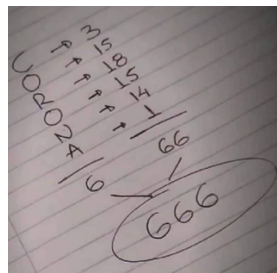 3 15 18 15 14 1 | 66
↑ ↑ ↑ ↑ ↑ ↑
CORONA | 6
666